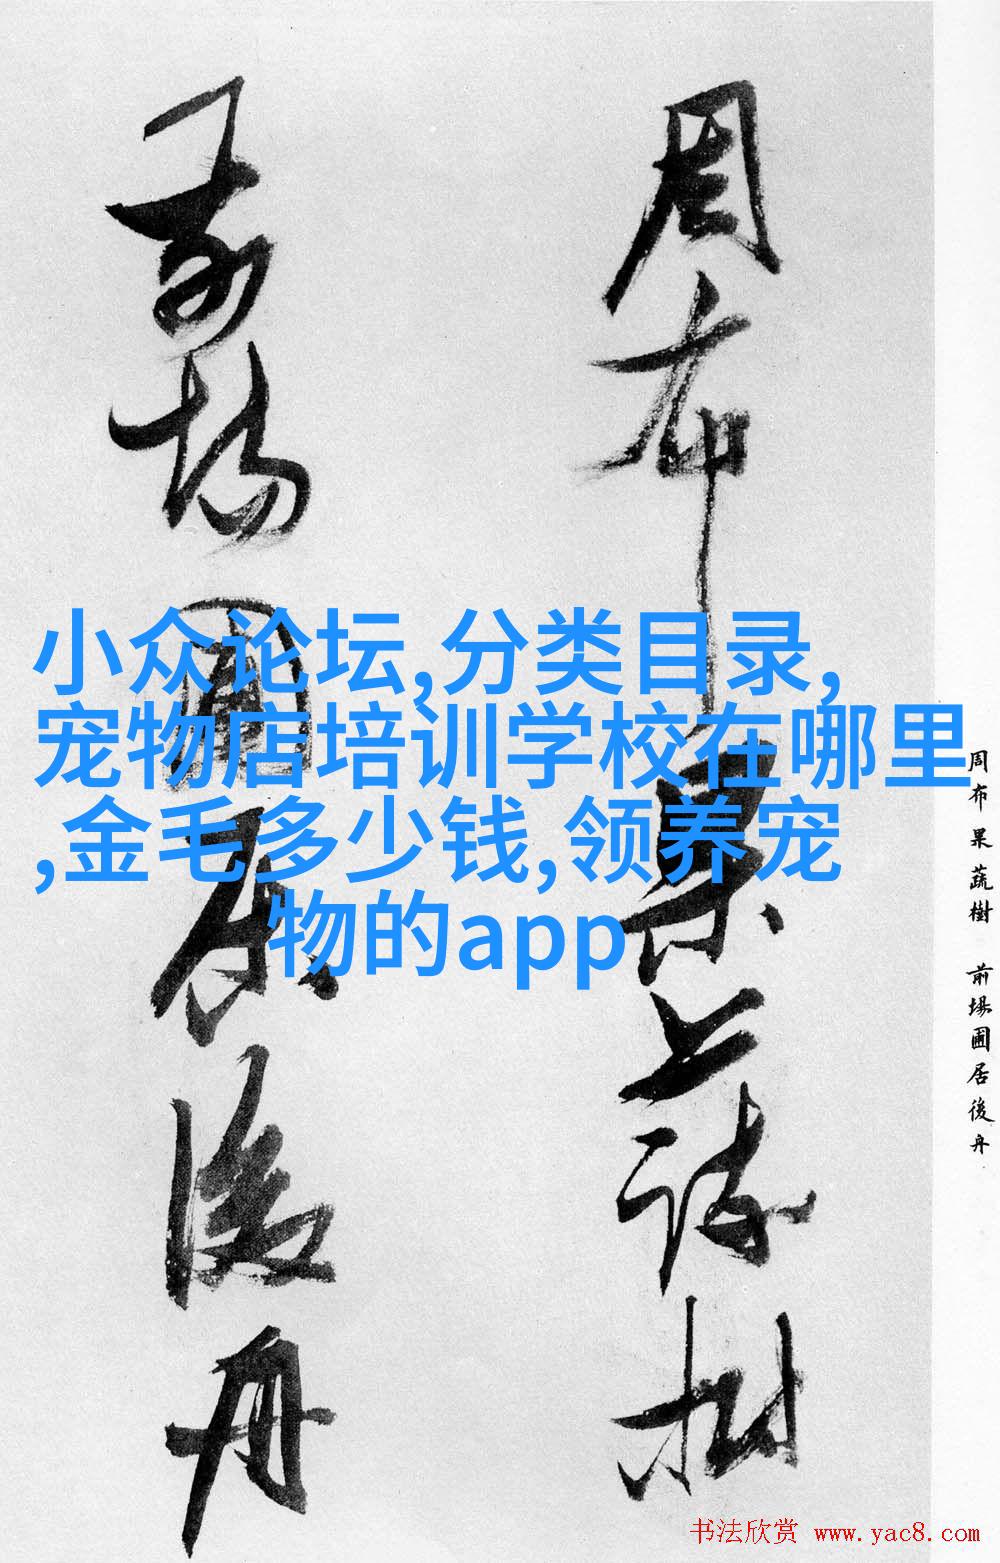 周布果蔬樹
前場圃居後舟
小众论坛,分类目录,
宠物店培训学校在哪里
,金毛多少钱,领养宠
物的app
周布果蔬樹 前場圃居後舟
书法欣赏 www.yac8.com